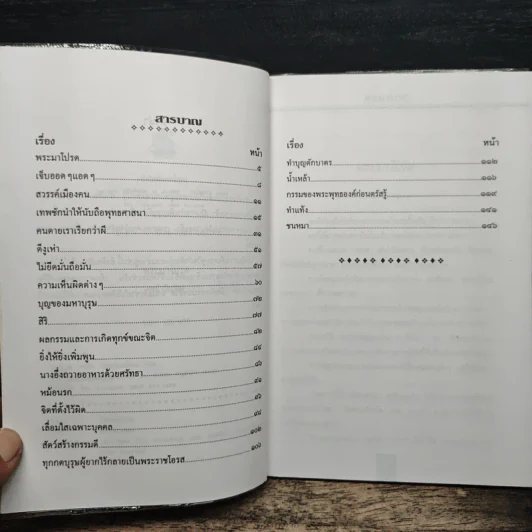 สารบาญ
เรื่อง หน้า
พระมาโปรด ๕
เจ็บออด ๆ แอด ๆ ๘
สวรรค์เมืองคน ๑๑
เทพชักนำให้นับถือพุทธศาสนา ๑๕
คนตายเราเรียกว่าผี ๓๑
ตีงูเห่า ๕๑
ไม่ยึดมั่นถือมั่น ๕๗
ความเห็นผิดต่าง ๆ ๖๐
บุญของมหาบุรุษ ๗๒
สิริ ๗๗
ผลกรรมและการเกิดทุกข์ขณะจิต ๘๒
ยิ่งให้ยิ่งเพิ่มพูน ๘๔
นางยื่งถวายอาหารด้วยศรัทธา ๘๖
หม้อนรก ๙๑
จิตที่ตั้งไว้ผิด ๙๖
เลื่อมใสเฉพาะบุคคล ๙๘
สัตว์สร้างกรรมดี ๑๐๒
ทุกกตบุรุษผู้ยากไร้กลายเป็นพระราชโอรส ๑๐๖
เรื่อง หน้า
ทำบุญตักบาตร ๑๑๒
น้ำเหล้า ๑๑๖
กรรมของพระพุทธองค์ก่อนตรัสรู้ ๑๑๙
ทำแท้ง ๑๔๑
ชนหมา ๑๔๖